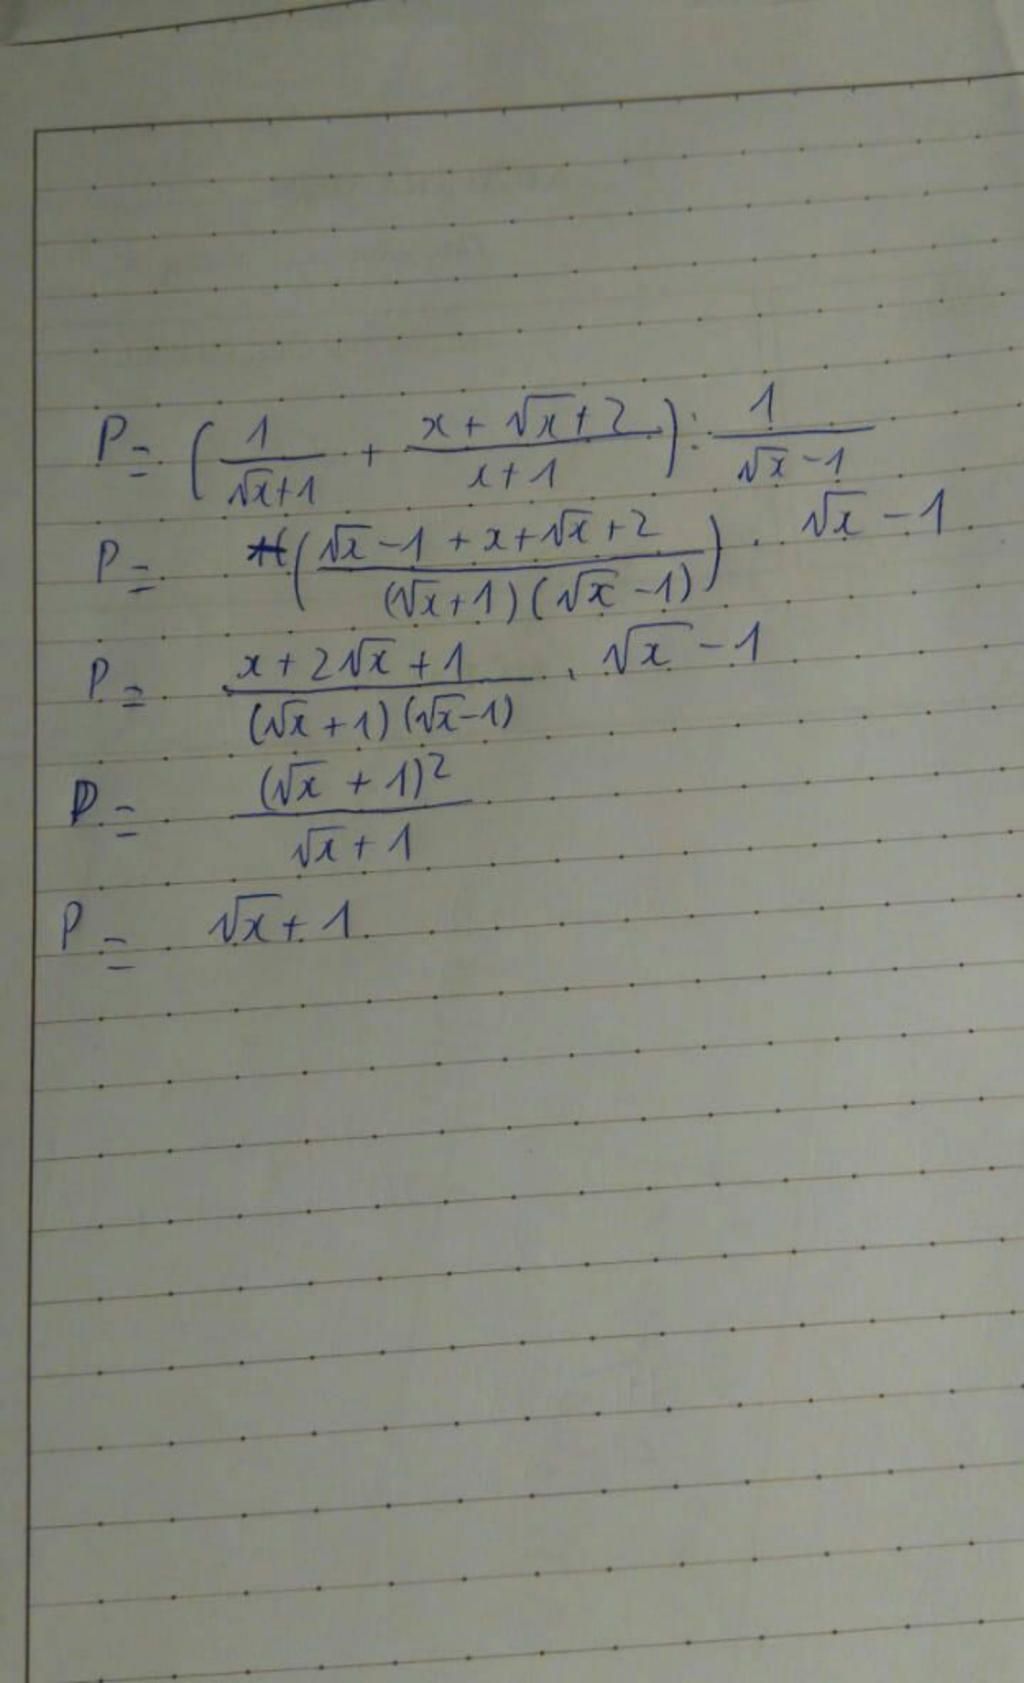 P = (1/(√x+1) + (x+√x+2)/(x+1)) : 1/(√x-1)
P = ((√x-1+x+√x+2)/((√x+1)(√x-1))) . √x-1
P = (x+2√x+1)/((√x+1)(√x-1)) . √x-1
P = (√x+1)²/(√x+1)
P = √x+1